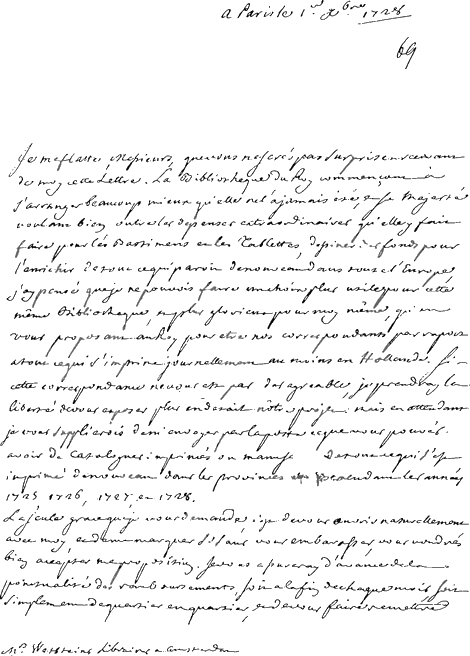 A Paris le 1er xbre 1728
69
Je me flatte, Messieurs, que vous ne serés pas surpris en recevant
de moy cette Lettre. La Bibliotheque du Roy commençant à
s'arranger beaucoup mieux qu'elle ne l'a jamais été, et Sa Majesté
voulant bien outre les depenses extraordinaires qu'elle y fait
faire pour les Bastimens et les Tablettes, destiner des fonds pour
l'enrichir de tout ce qui paroit de nouveau dans toute l'Europe
j'ay pensé que je ne pouvois faire un choix plus utile pour cette
même Bibliotheque, ny plus glorieux pour moy même, qu'en
vous proposant au Roy pour etre nos correspondants par raport
a tout ce qui s'imprime journellement au moins en Hollande. Si
cette correspondance ne vous est pas desagreable, je prendray la
liberté de vous exposer plus en detail nôtre projet. mais en attendant
je vous supplierois de m'envoyer par la poste ce que vous pouvés
avoir de Catalogues imprimés ou manusc. De tout ce qui s'est
imprimé de nouveau dans les provinces pendant les années
1725 1726, 1727 et 1728.
La seule grace que je vous demande, c'est de vous ouvrir naturellement
avec moy, et de me marquer si sans vous embarasser, vous voudrés
bien accepter ma proposition. Je vous assureray d'avance de la
ponctualité des remboursements, soit a la fin de chaque mois, soit
simplement de quartier en quartier, et de vous faire remettre
Mrs. Wetsteins Libraires a Amsterdam